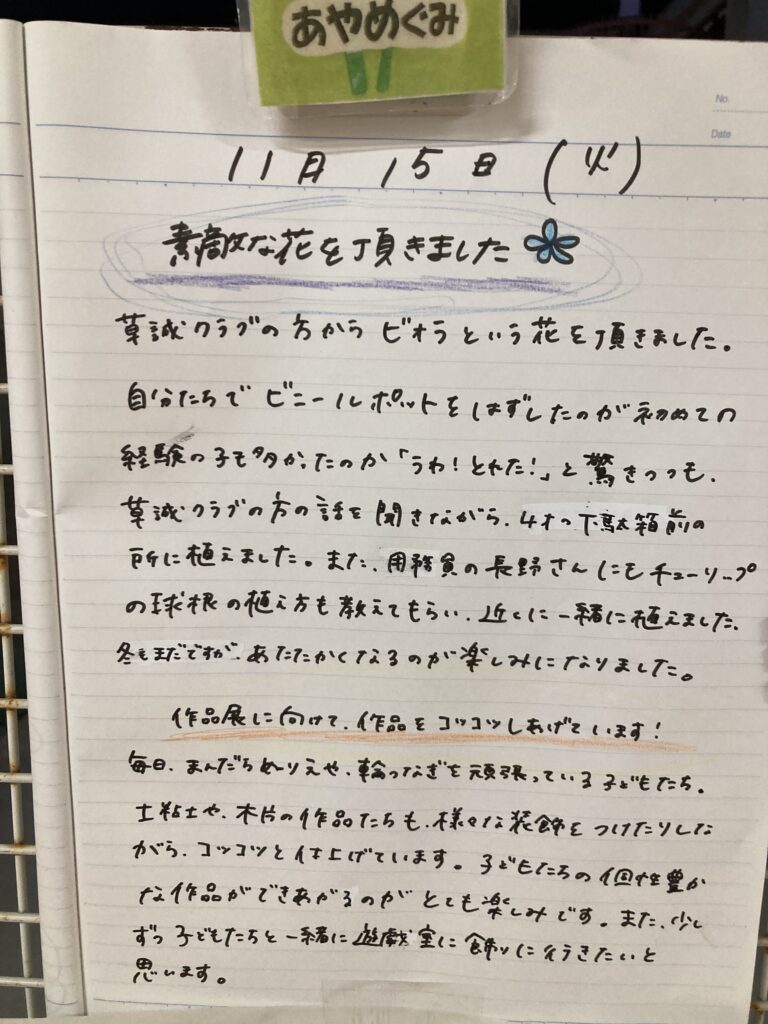 あやめぐみ
No.
Date
11月 15日 (火)
素敵な花を頂きました
草誠クラブの方から ビオラ という 花を頂きました。
自分たちで ビニールポットを はずしたのが 初めての
経験の子も多かったのか「うわ!とれた!」と 驚きつつも、
草誠クラブの方の話を 聞きながら、4才の下駄箱前の
所に植えました。また、用務員の長野さんにもチューリップ
の球根の植え方も教えてもらい、近くに一緒に植えました。
冬もまだですが、あたたかくなるのが楽しみになりました。
作品展に向けて、作品をコツコツしあげています!
毎日、まんだらぬりえや、輪つなぎを頑張っている子どもたち。
土粘土や、木片の作品たちも、様々な装飾をつけたりしな
がら、コツコツと仕上げています。子どもたちの個性豊か
な作品ができあがるのがとても楽しみです。また、少し
ずつ子どもたちと一緒に遊戯室に飾りに行きたいと
思います。